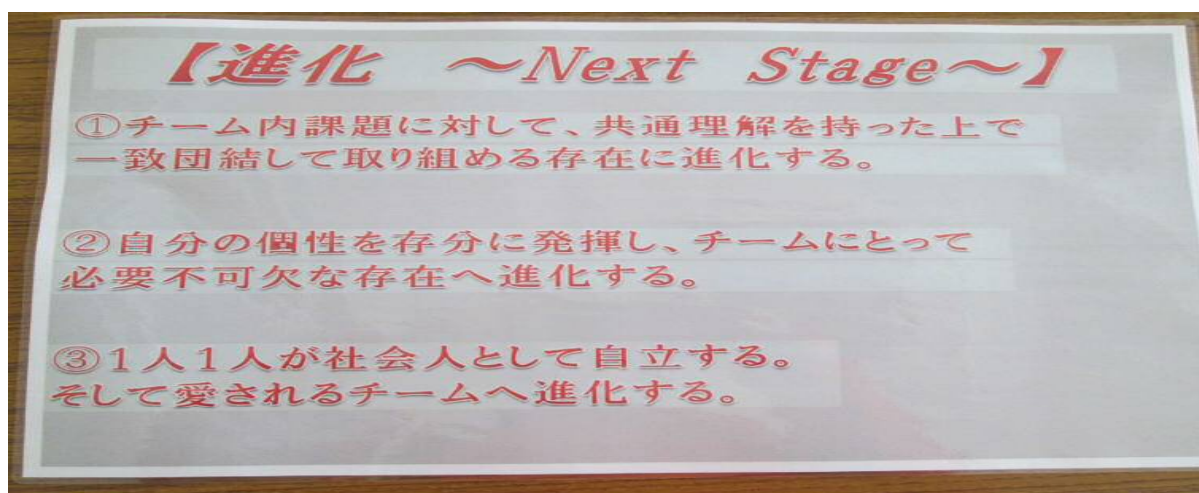 【進化 ～Next Stage～】
①チーム内課題に対して、共通理解を持った上で
一致団結して取り組める存在に進化する。
②自分の個性を存分に発揮し、チームにとって
必要不可欠な存在へ進化する。
③1人1人が社会人として自立する。
そして愛されるチームへ進化する。